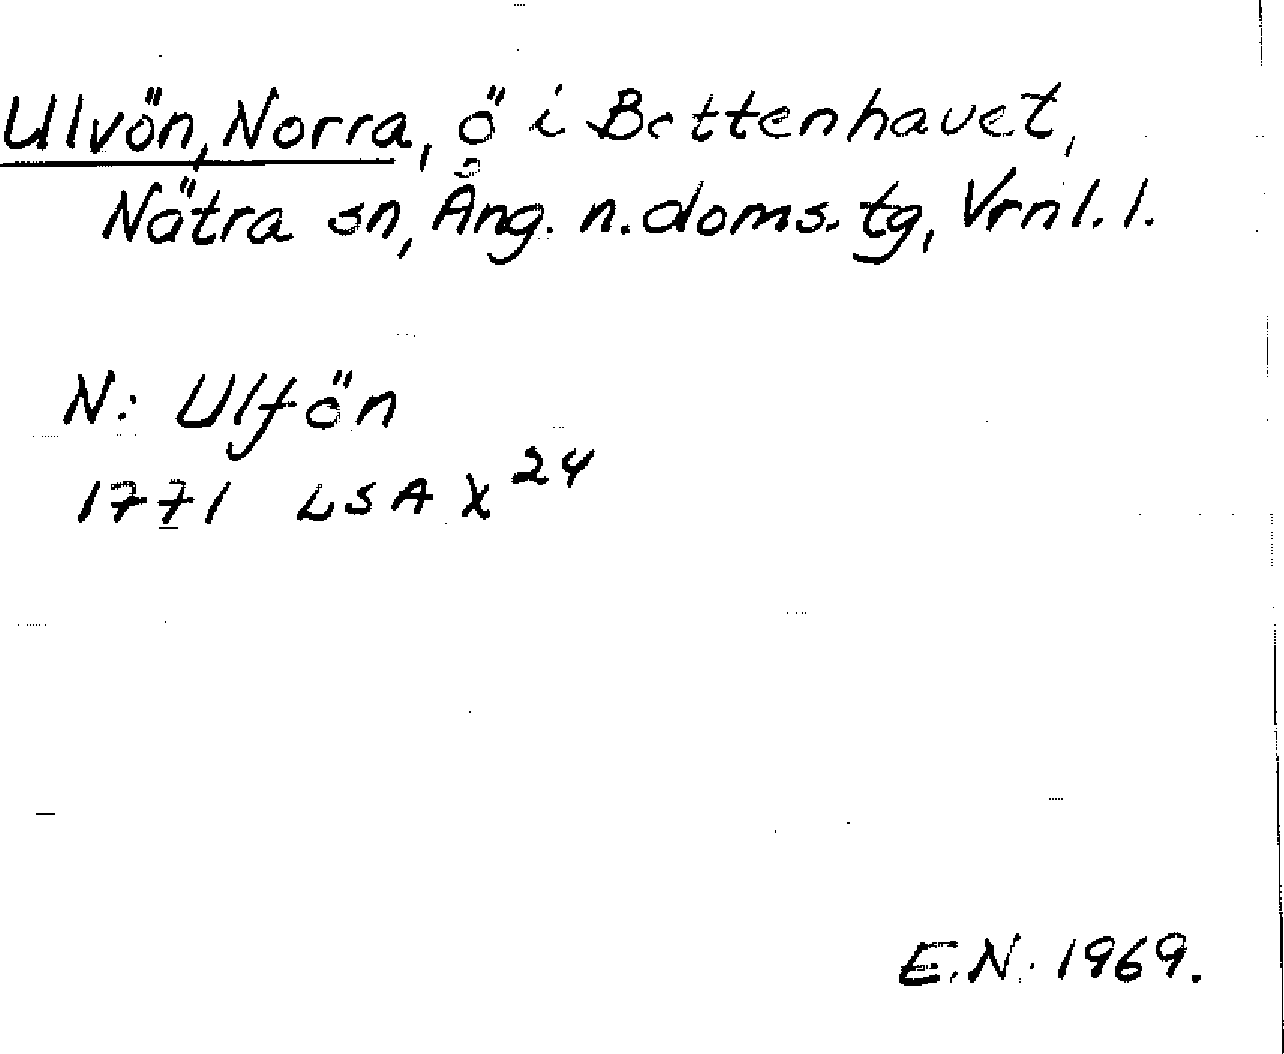 Ulvön, Norra, ö i Bottenhavet,
Nätra sn, Ång. n. doms. tg, Vrnl. l.
N: Ulfön
1771 LSA X 24
E.N. 1969.